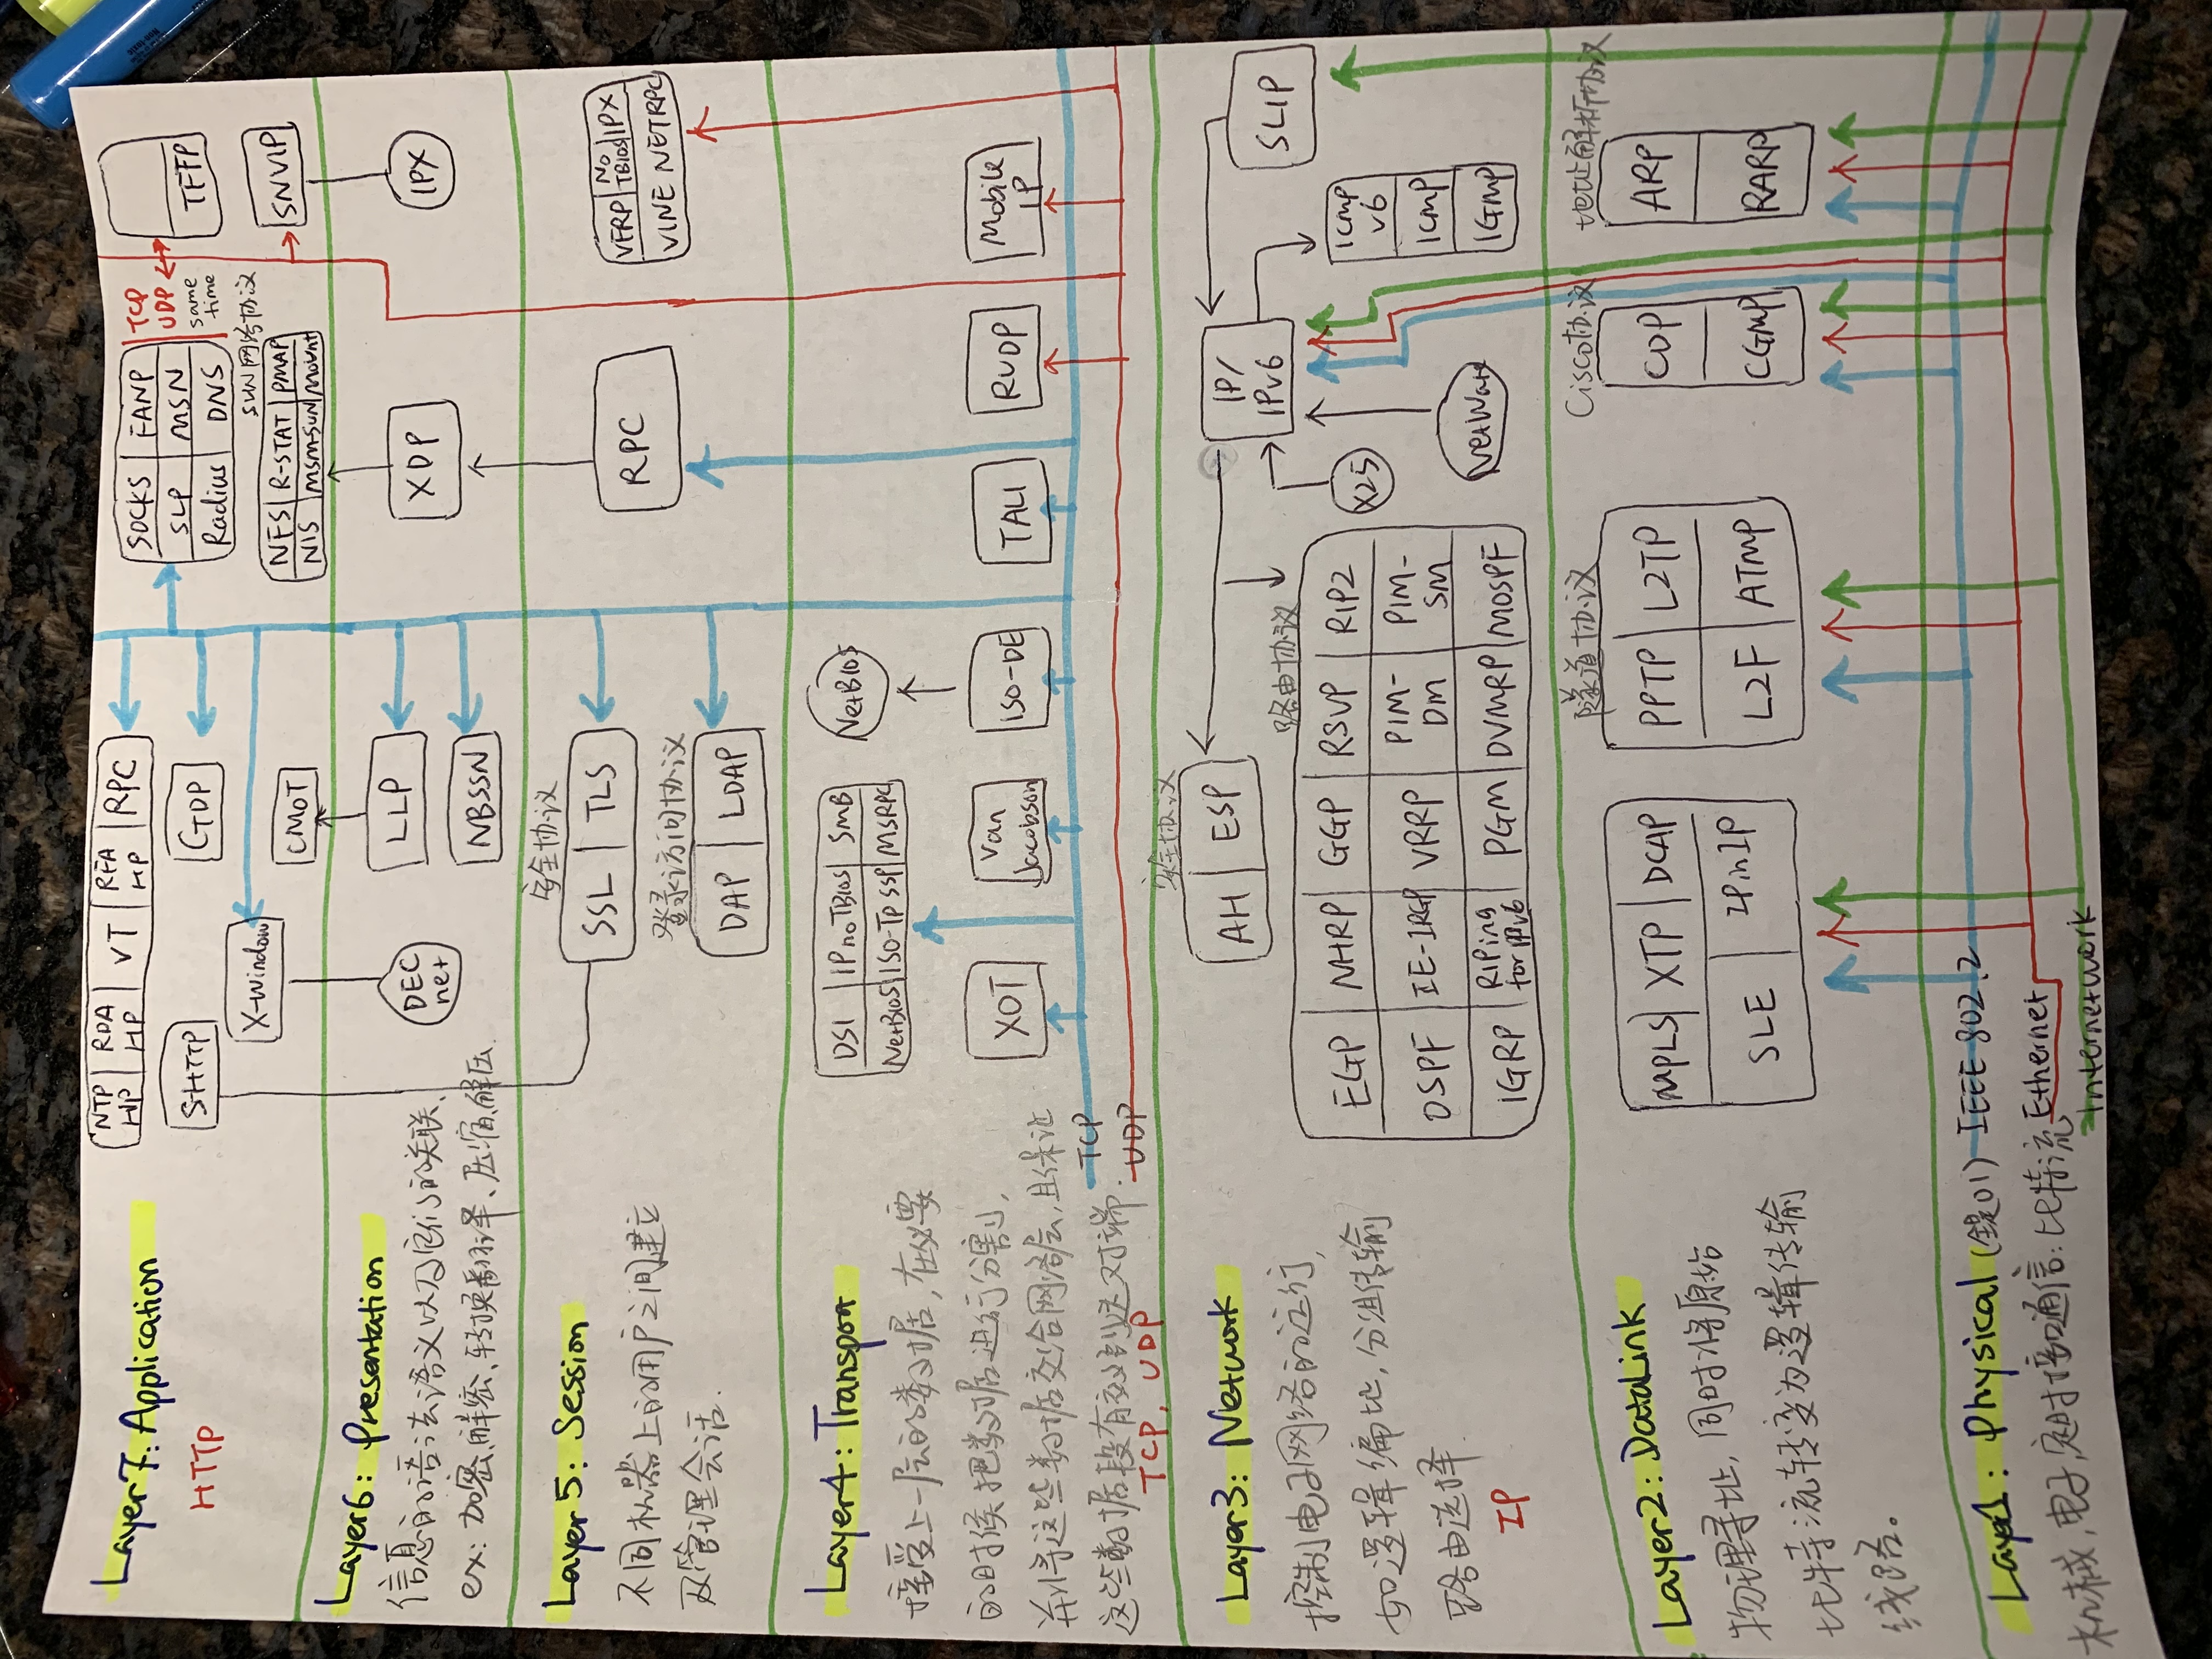 Layer7: Application
HTTP
NTP HP
RDA HP
VT
RFA HP
RPC
S-HTTP
GDP
X-Window
CMOT
SOCKS
FANP
SLP
MSN
Radius
DNS
TCP
UDP
same
time
TFTP
SUN网络协议
NFS
R-STAT
PMAP
NIS
MSM-SUN
Mount
SNVIP
Layer6: Presentation
信息的语法语义以及它们的关联,
ex: 加密、解密、转换翻译、压缩、解压
DEC
net
LLP
NBSSN
XDP
IPX
Layer5: Session
不同机器上的用户之间建立
及管理会话.
安全协议
SSL
TLS
登录访问协议
DAP
LDAP
RPC
VERP
NO
TBios
IPX
VINE NETRPC
Layer4: Transport
接受上一层的数据, 在必要
的时候把数据进行分割,
并将这些数据交给网络层, 且保证
这些数据段有效到达对端.
TCP, UDP
DSI
IPnoTBios
SMB
NetBioS
ISO-TP SSP
MSRPC
NetBioS
XOT
Van
Jacobson
ISO-DE
TALI
RUDP
Mobile
IP
TCP
UDP
Layer3: Network
控制电子网络的运行,
如逻辑编址, 分组传输
路由选择.
IP
安全协议
AH
ESP
IP/
IPv6
SLIP
路由协议
EGP
NHRP
GGP
RSVP
RIP2
OSPF
IE-IRGP
VRRP
PIM-
DM
PIM-
SM
IGRP
RIPing
for IPv6
PGM
DVMRP
MOSPF
X25
NetWare
ICMP
v6
ICMP
IGMP
Layer2: DataLink
物理寻址, 同时将原始
比特流转变为逻辑传输
线路。
MPLS
XTP
DCAP
SLE
IPinIP
隧道协议
PPTP
L2TP
L2F
ATMP
Cisco协议
CDP
CGMP
地址解析协议
ARP
RARP
Layer1: Physical (鍉01)
IEEE 802.2
机械, 电子, 定时接口通信: 比特流
Ethernet
Internetwork